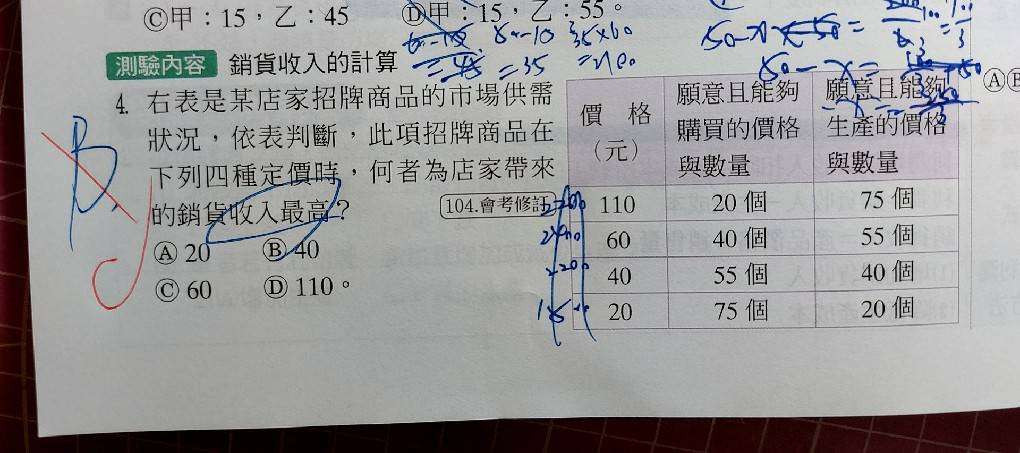 Ⓒ甲:15,乙:45 Ⓓ甲:15,乙:55。
測驗內容 銷貨收入的計算
4. 右表是某店家招牌商品的市場供需
狀況,依表判斷,此項招牌商品在
下列四種定價時,何者為店家帶來
的銷貨收入最高? 104.會考修訂
Ⓐ 20 Ⓑ 40
Ⓒ 60 Ⓓ 110。
B
價 格
(元)
願意且能夠
購買的價格
與數量
願意且能夠
生產的價格
與數量
110 20 個 75 個
60 40 個 55 個
40 55 個 40 個
20 75 個 20 個
35×60
=35 =2100